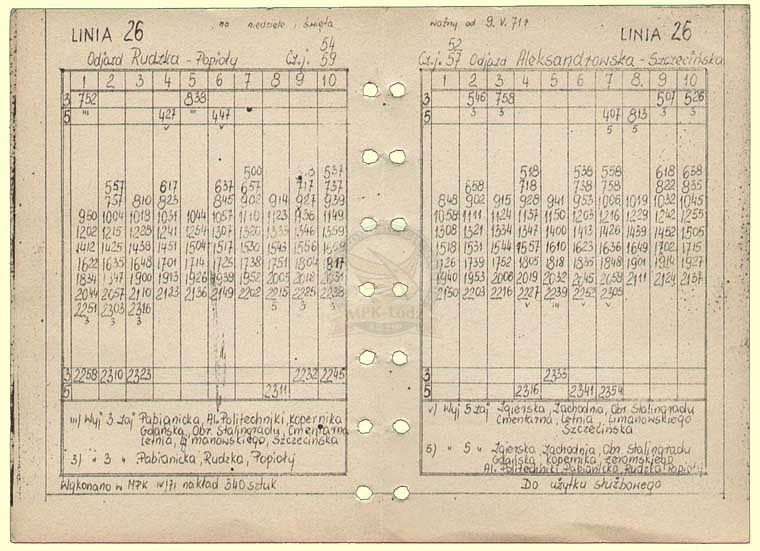 LINIA 26
na niedziele i święta
ważny od 9.V.71r
LINIA 26
54
Odjazd Rudzka - Popioły Cz.j. 59
52
Cz.j. 57 Odjazd Aleksandrowska - Szczecińska
1 2 3 4 5 6 7 8 9 10
3 752 838
5 427 447
500 537
557 617 637 657 717 737
757 810 823 845 902 914 927 939
950 1004 1018 1031 1044 1057 1110 1123 1136 1149
1202 1215 1228 1241 1254 1307 1320 1333 1346 1359
1412 1425 1438 1451 1504 1517 1530 1543 1556 1609
1622 1635 1648 1701 1714 1725 1738 1751 1804 1817
1834 1847 1900 1913 1926 1939 1952 2005 2018 2031
2044 2057 2110 2123 2136 2149 2202 2215 2225 2238
2251 2303 2316
3 2258 2310 2323 2232 2245
5 2311
1 2 3 4 5 6 7 8. 9 10
3 546 758 507 526
5 407 813
518 538 558 618 638
658 718 738 758 822 835
848 902 915 928 941 953 1006 1019 1032 1045
1058 1111 1124 1137 1150 1203 1216 1229 1242 1255
1308 1321 1334 1347 1400 1413 1426 1439 1452 1505
1518 1531 1544 1557 1610 1623 1636 1649 1702 1715
1726 1739 1752 1805 1818 1835 1848 1901 1914 1927
1940 1953 2006 2019 2032 2045 2058 2111 2124 2137
2150 2203 2216 2227 2239 2252 2305
3 2333
5 2316 2341 2354
III) Wyj 3 Zaj Pabianicka, Al. Politechniki, Kopernika
Gdańska, Obr. Stalingradu, Cmentarna
Letnia, Limanowskiego, Szczecińska
3) " 3 " Pabianicka, Rudzka, Popioły
Wykonano w MPK IV/71 nakład 340 sztuk
v) Wyj 5 Zaj Zgierska, Zachodnia, Obr. Stalingradu
Cmentarna, Letnia, Limanowskiego
Szczecińska
5) " 5 " Zgierska Zachodnia, Obr. Stalingradu
Gdańska, Kopernika, Żeromskiego
Al. Politechniki Pabianicka, Rudzka Popioły
Do użytku służbowego
MPK-Łódź